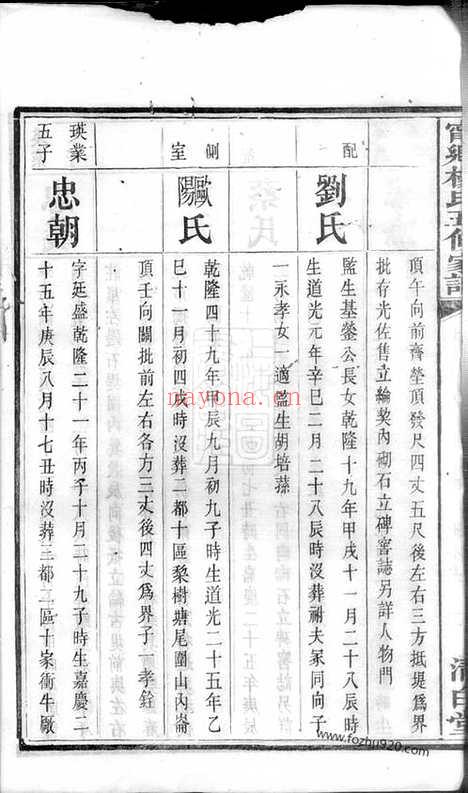 頂午向前齊塋頂發尺四丈五尺後左右三方抵堤爲界
批存光佐售立綸契內砌石立碑窨誌另詳人物門
配
劉氏
監生基鎣公長女乾隆十九年甲戌十一月二十八辰時
生道光元年辛巳二月二十八辰時沒葬祔夫冢同向子
一永孝女一適監生胡培蓀
側室
歐陽氏
乾隆四十九年甲辰九月初九子時生道光二十五年乙
巳十一月初四戌時沒葬二都十區黎樹塘尾圍山內崙
頂壬向關批前左右各方三丈後四丈爲界子一孝銓
瑛業五子
忠朝
字廷盛乾隆二十一年丙子十月二十九子時生嘉慶二
十五年庚辰八月十七丑時沒葬三都二區十家衝牛厰
mayona.com
www.fozhu920.com